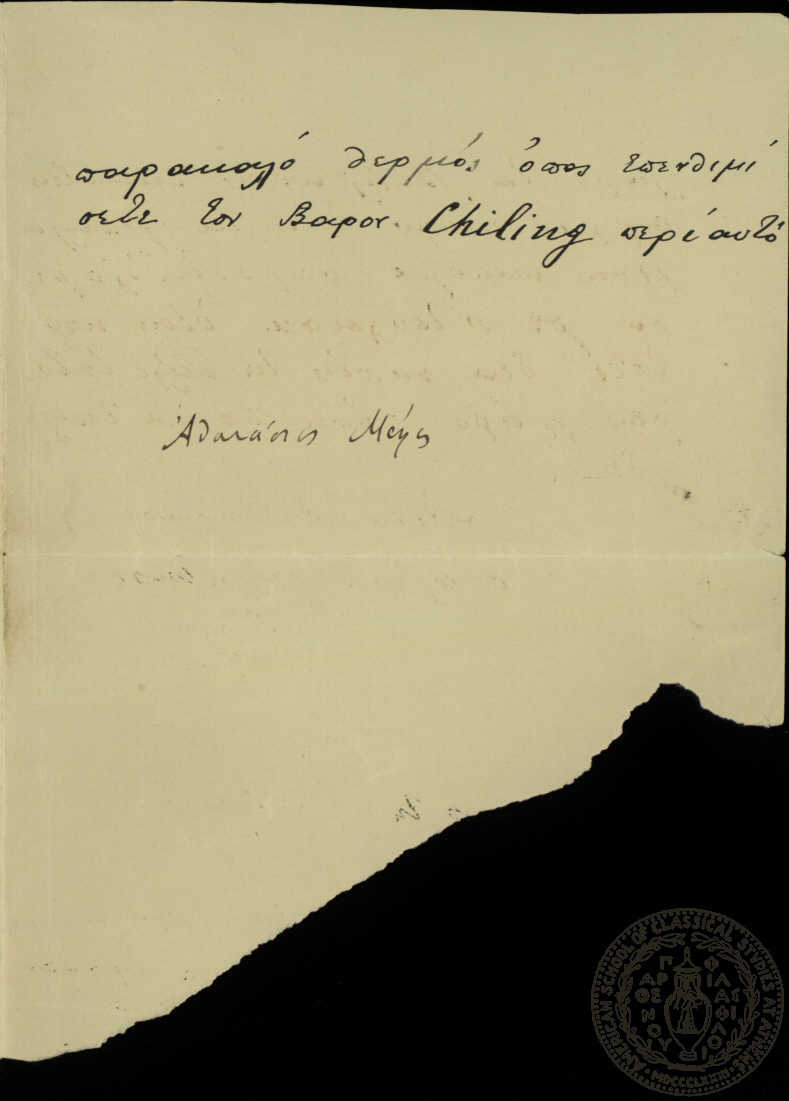 παρακαλό θερμός όπος επενθιμί
σετε τον Βαρον. Chiling περί αυτό
Αθανάσιος Μέγας
AMERICAN SCHOOL OF CLASSICAL STUDIES AT ATHENS
ΠΑΡΘΕΝΟΥ ΦΙΛΑΣ ΦΙΛΟΙ
MDCCCLXXXI